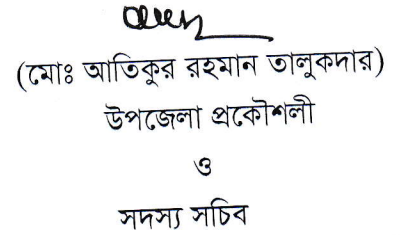 (মোঃ আতিকুর রহমান তালুকদার)
উপজেলা প্রকৌশলী
ও
সদস্য সচিব